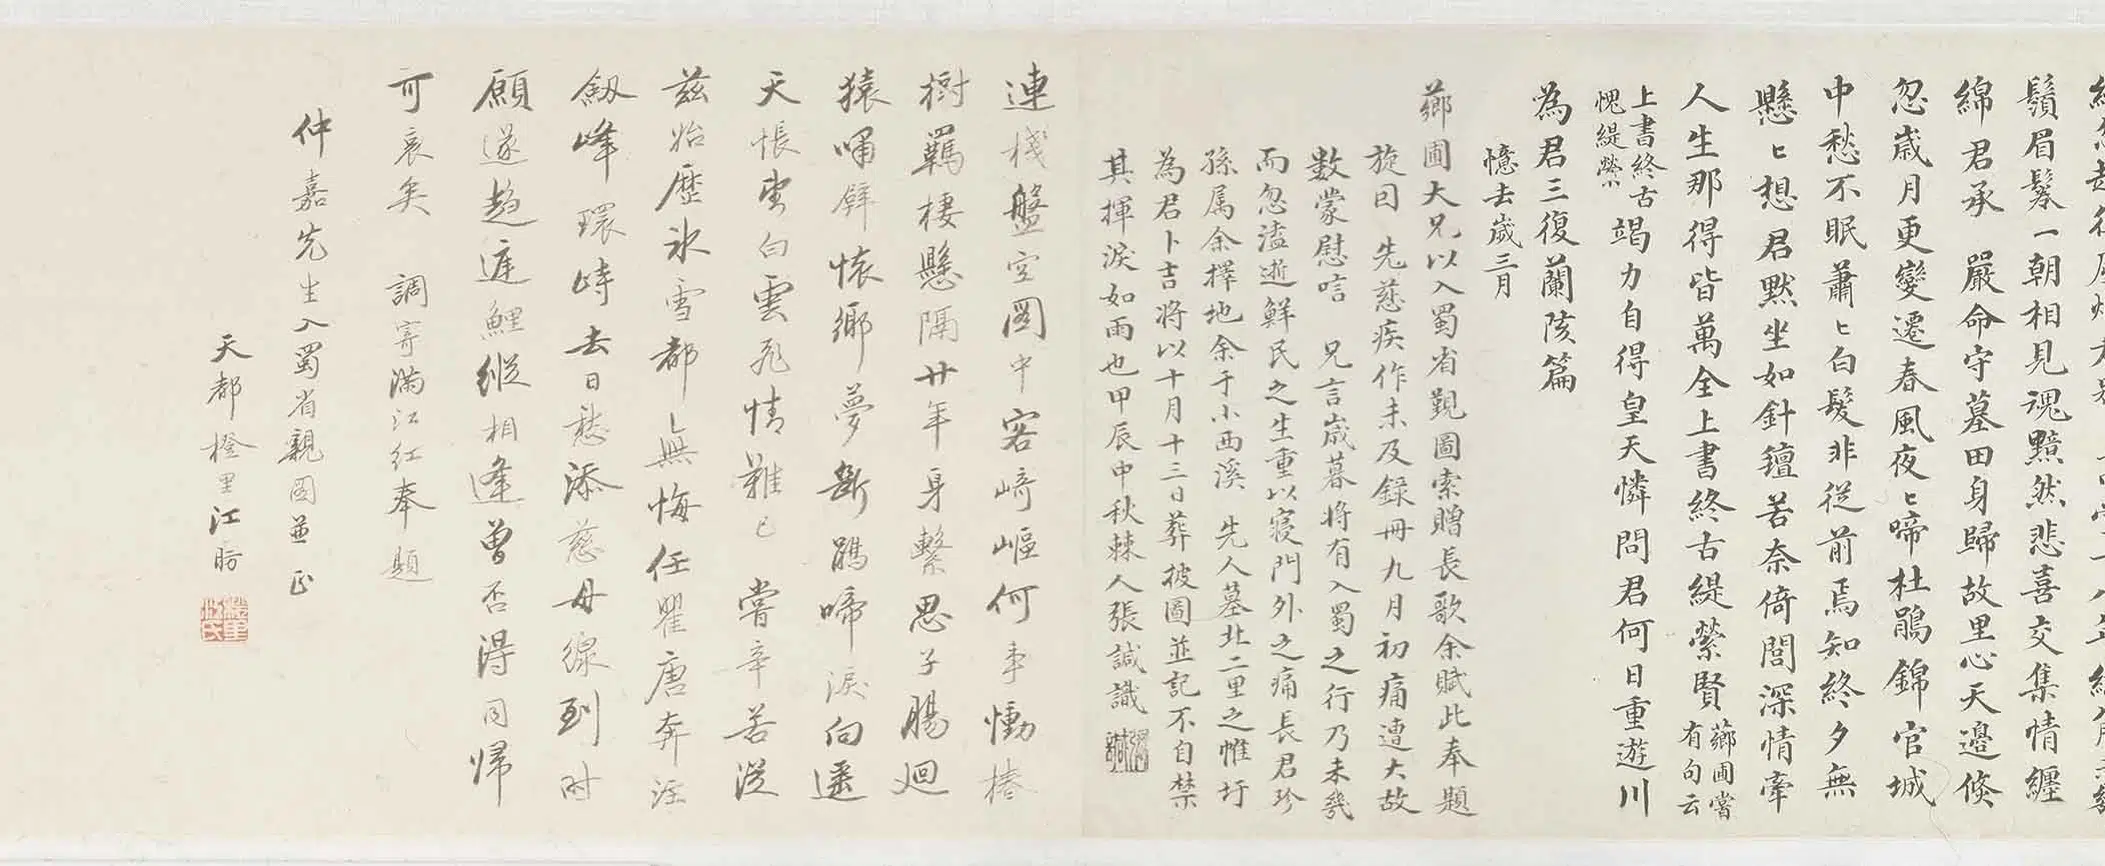 鬚眉鬖一朝相見魂黯然悲喜交集情纏
綿君承 嚴命守墓田身歸故里心天邊倏
忽歲月更變遷春風夜ヒ啼杜鵑錦官城
中愁不眠蕭ヒ白髮非從前焉知終夕無
懸ヒ想君默坐如針氊若奈倚閭深情牽
人生那得皆萬全上書終古緹縈賢 薌圃嘗
有句云
上書終古
愧緹縈 竭力自得皇天憐問君何日重遊川
為君三復蘭陔篇
憶去歲三月
薌圃大兄以入蜀省覲圖索贈長歌余賦此奉題
旋因 先慈疾作未及錄冊九月初痛遭大故
數蒙慰唁 兄言歲暮將有入蜀之行乃未幾
而忽溘逝鮮民之生重以寢門外之痛長君珍
孫属余擇地余于小西溪 先人墓北二里之帷圩
為君卜吉将以十月十三日葬披圖並記不自禁
其揮淚如雨也甲辰中秋棘人張諴識
連棧盤空圖中客崎嶇何事慟椿
樹羈棲懸隔廿年身繫思子腸迴
猿嘯騂懷鄉夢斷鵑啼淚向遥
天悵望白雲飛情難已 嘗辛苦從
兹始歷氷雪都無悔任瞿唐奔注
劔峰環峙去日愁添慈母線到时
願遂趨庭鯉縱相逢曽否淂同帰
可哀矣 調寄滿江紅奉題
仲嘉先生入蜀省親圖並正
天都橙里江昉